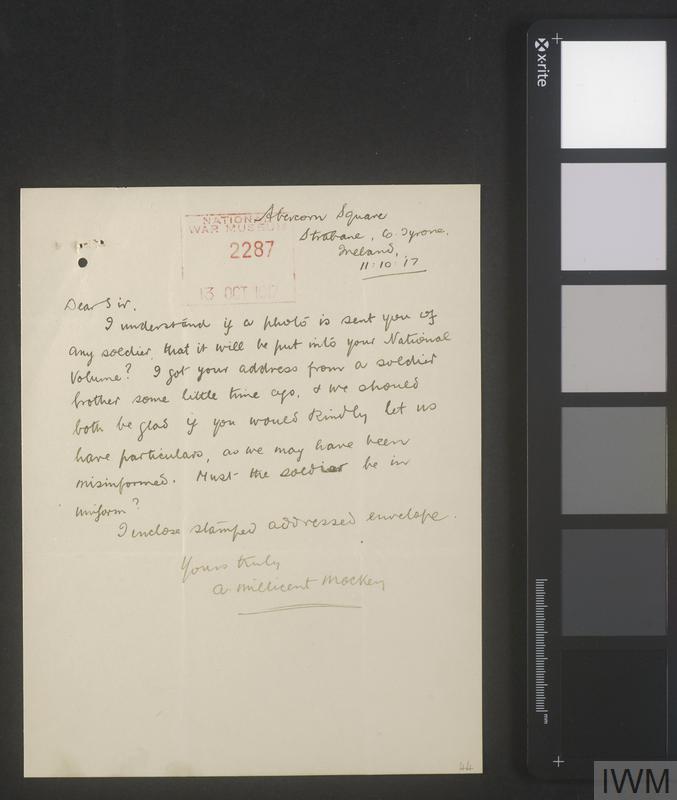 Abercorn Square
Strabane, Co. Tyrone.
Ireland,
11:10:17
NATIONAL
WAR MUSEUM
2287
13 OCT 1917
Dear Sir,
I understand if a photo is sent you of
any soldier, that it will be put into your National
Volume? I got your address from a soldier
brother some little time ago, & we should
both be glad if you would kindly let us
have particulars, as we may have been
misinformed. Must the soldier be in
uniform?
I inclose stamped addressed envelope.
Yours truly
A. Millicent Mackey
44
x-rite
mm
IWM